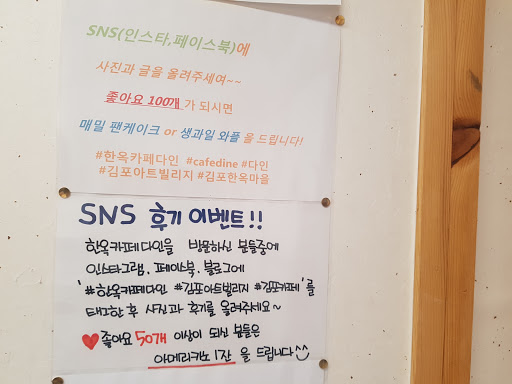 SNS(인스타,페이스북)에
사진과 글을 올려주세여~~
좋아요 100개 가 되시면
매밀 팬케이크 or 생과일 와플 을 드립니다!
#한옥카페다인 #cafedine #다인
#김포아트빌리지 #김포한옥마을
SNS 후기 이벤트!!
한옥카페다인을 방문하신 분들중에
인스타그램, 페이스북, 블로그에
'#한옥카페다인 #김포아트빌리지 #김포카페'를
태그한 후 사진과 후기를 올려주세요~
♥좋아요 50개 이상이 되신 분들은
아메리카노 1잔 을 드립니다^^